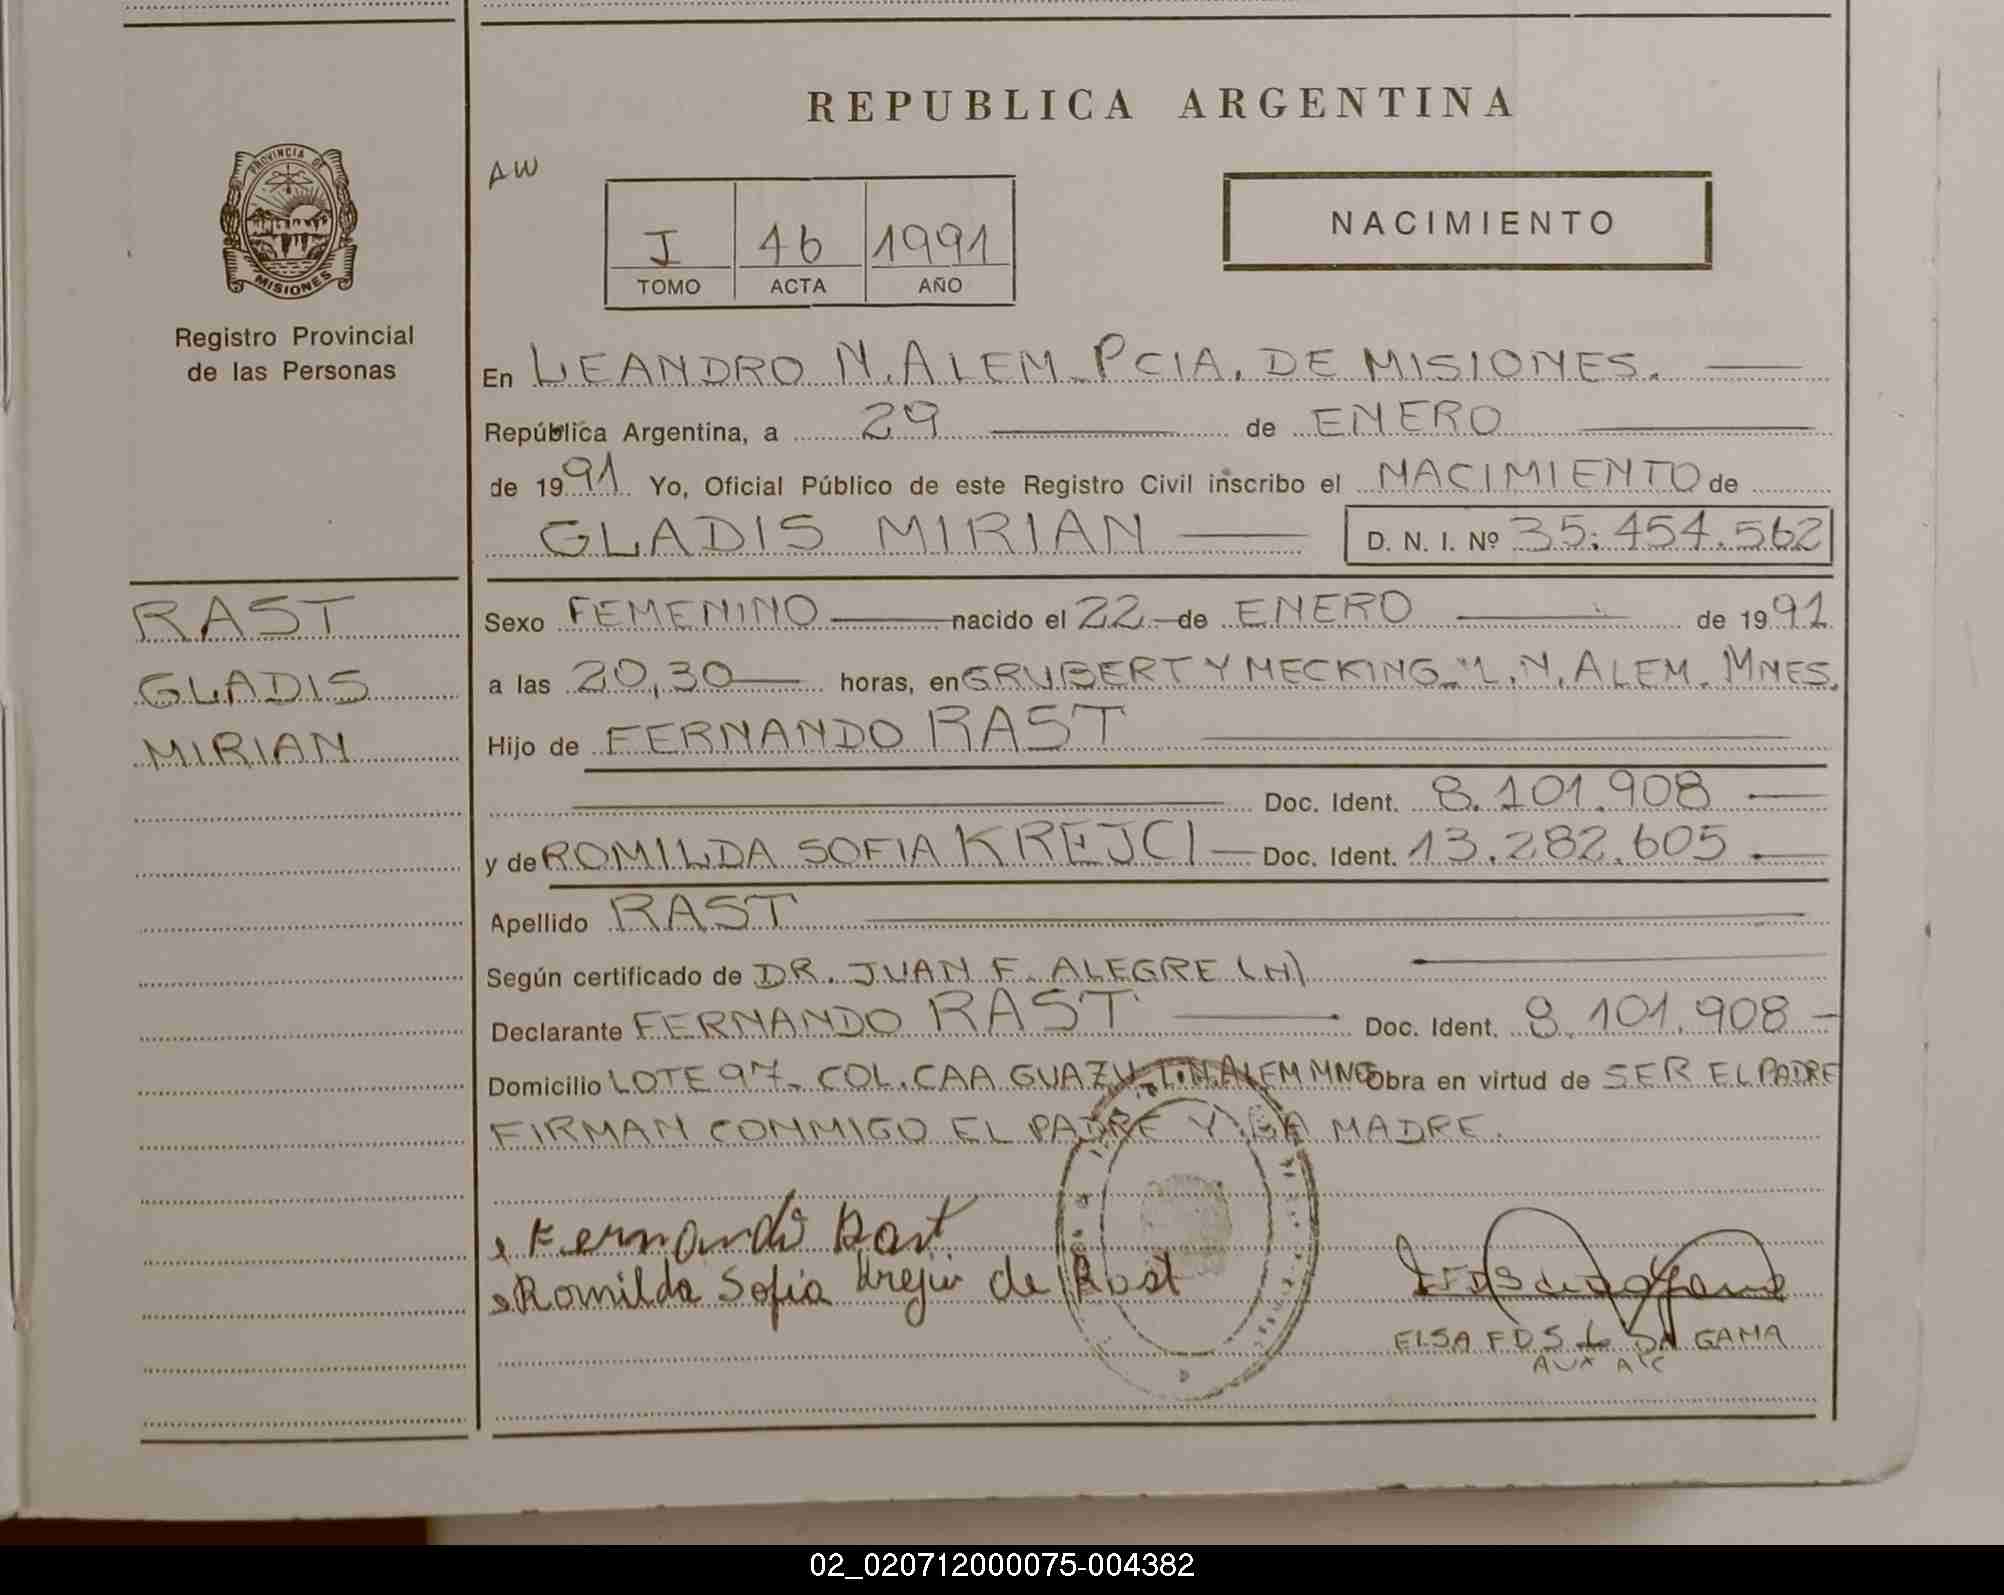 REPUBLICA ARGENTINA
AW
PROVINCIA DE
MISIONES
Registro Provincial
de las Personas
I 46 1991
TOMO ACTA AÑO
NACIMIENTO
En LEANDRO N. ALEM PCIA. DE MISIONES.
República Argentina, a 29 de ENERO
de 1991 Yo, Oficial Público de este Registro Civil inscribo el NACIMIENTO de
GLADIS MIRIAN D. N. I. Nº 35.454.562
RAST
GLADIS
MIRIAN
Sexo FEMENINO nacido el 22 de ENERO de 1991
a las 20,30 horas, en GRUBERT Y MECKING L. N. ALEM. MNES.
Hijo de FERNANDO RAST
Doc. Ident. 8.101.908
y de ROMILDA SOFIA KREJCI Doc. Ident. 13.282.605
Apellido RAST
Según certificado de DR. JUAN F. ALEGRE (H)
Declarante FERNANDO RAST Doc. Ident. 8.101.908
Domicilio LOTE 97 COL. CAA GUAZU L.N.ALEM MNES Obra en virtud de SER EL PADRE
FIRMAN CONMIGO EL PADRE Y LA MADRE.
Fernando Rast
Romilda Sofia Krejci de Rast
ELSA F.D.S. DA GAMA
AUX
02_020712000075-004382